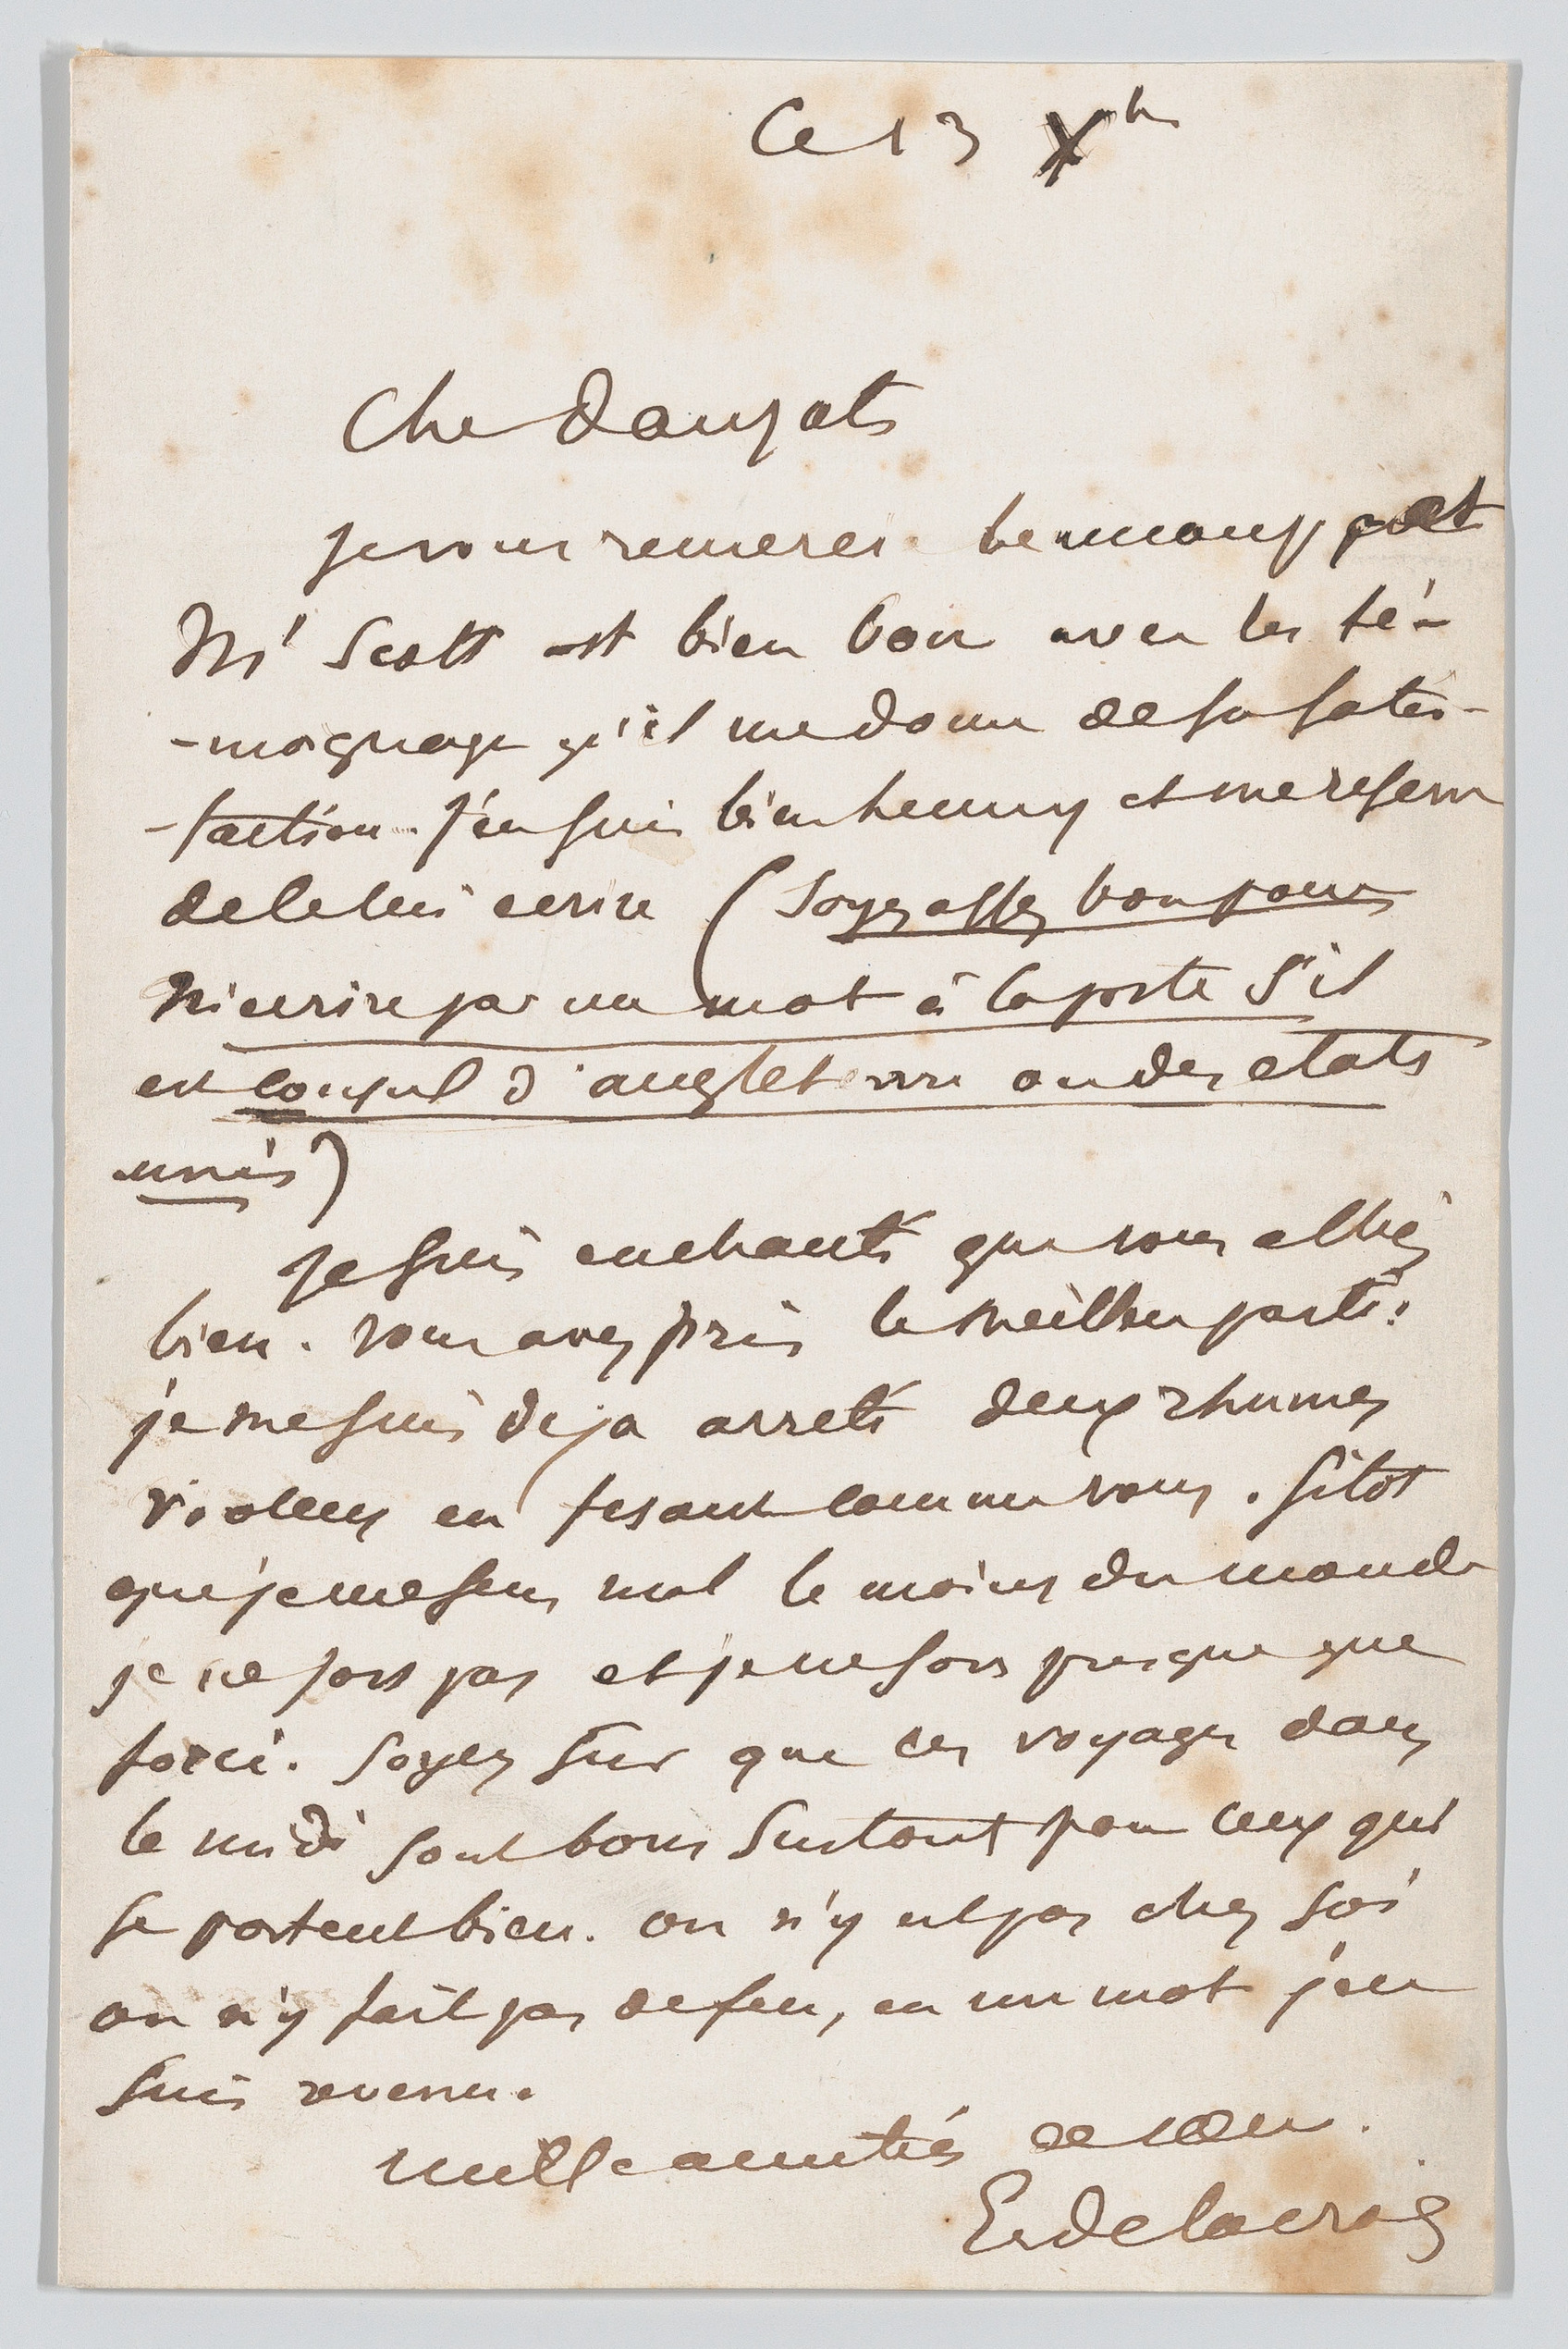 Ce 13 Xbre
Cher Dauzats
je vous remercie beaucoup et
Mr Scott est bien bon avec les té-
-moignages qu'il me donne de sa satis-
-faction. J'en suis bien heureux et me réserve
de le lui ecrire (Soyez assez bon pour
m'ecrire par un mot à la poste s'il
est consul d'angleterre ou des etats
unis)
je suis enchanté que vous alliez
bien. vous avez pris le meilleur parti:
je me suis deja arreté deux rhumes
violens en fesant comme vous. Sitot
que je me sens mal le moins du monde
je ne sors pas et je ne sors presque que
forcé. Soyez sur que ces voyages dans
le midi sont bons surtout pour ceux qui
se portent bien. on n'y est pas chez soi
on n'y fait pas de feu, en un mot j'en
suis revenu.
mille amitiés de coeur.
Eugdelacroix